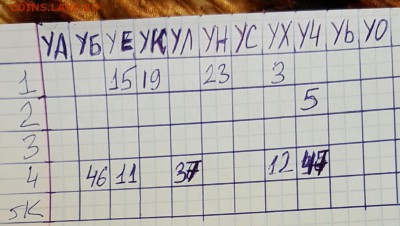 COINS.LAVE.RU
УА УБ УЕ УК УЛ УН УС УХ УЧ УЬ УО
1 15 19 23 3
2 5
3
4 46 11 37 12 47
5К